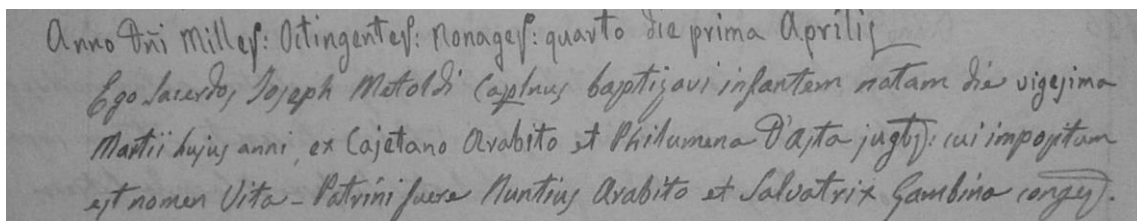 Anno Dñi Milles: Octingentes: Nonages: quarto die prima Aprilis
Ego Sacerdos Joseph Metoldi Caplnus baptizavi infantem natam die vigesima
Martii hujus anni, ex Cajetano Arabito et Philumena D'Asta jugtbs: cui impositum
est nomen Vita - Patrini fuere Nuntius Arabito et Salvatrix Gambino conges.